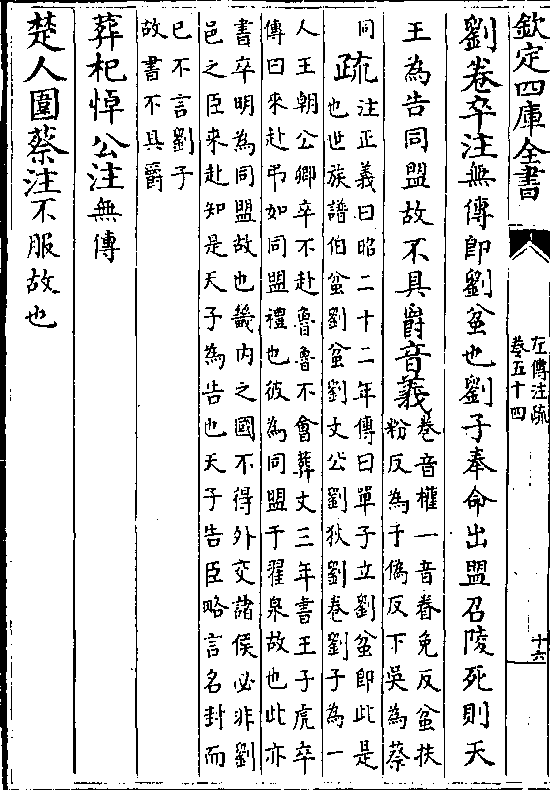 欽定四庫全書
左傳注疏
卷五十四
十六
劉卷卒注無傳即劉蚠也劉子奉命出盟召陵死則天
王為告同盟故不具爵音義
卷音權一音眷免反蚠扶
粉反為于偽反下吳為蔡
同
疏
注正義曰昭二十二年傳曰單子立劉蚠即此是
也世族譜伯蚠劉蚠劉文公劉狄劉卷劉子為一
人王朝公卿卒不赴魯魯不會葬文三年書王子虎卒
傳曰來赴弔如同盟禮也彼為同盟于翟泉故也此亦
書卒明為同盟故也畿内之國不得外交諸侯必非劉
邑之臣來赴知是天子為告也天子告臣略言名封而
已不言劉子
故書不具爵
葬杞悼公注無傳
楚人圍蔡注不服故也